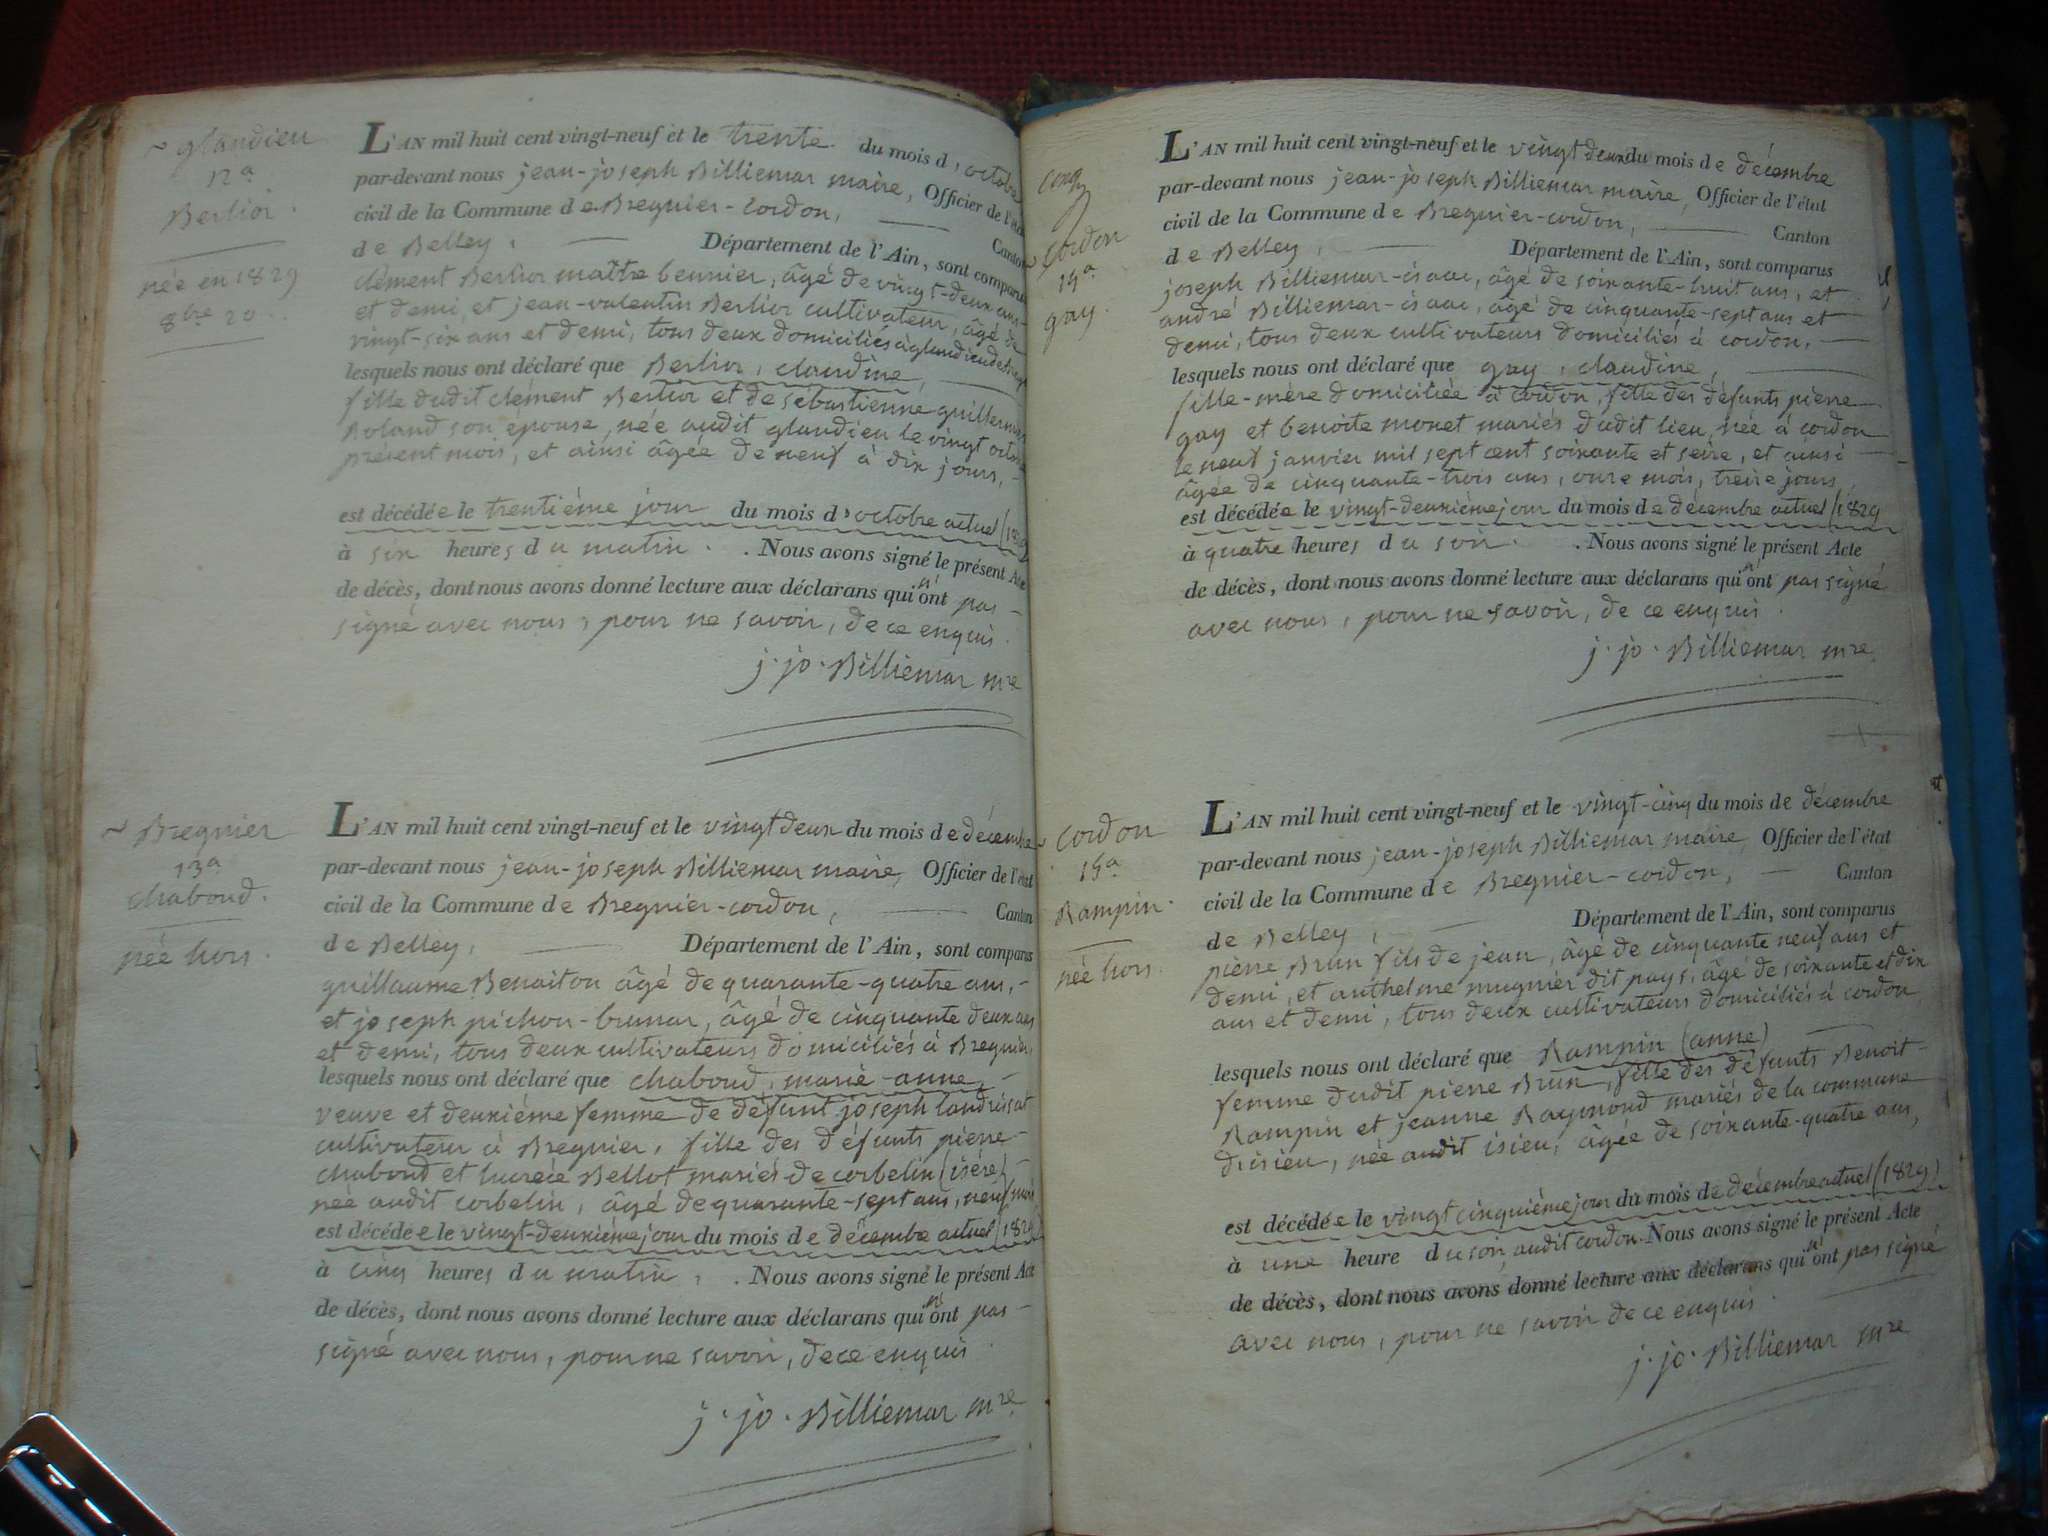 ~ glandieu
12a
Berlior.
née en 1829
8bre 20.
L'AN mil huit cent vingt-neuf et le trente du mois d'octobre
par-devant nous jean-joseph Billiemar maire, Officier de l'état
civil de la Commune de Bregnier-cordon, Canton
de Belley, Département de l'Ain, sont comparus
clément Berlior maître bennier, âgé de vingt-deux ans
et demi et jean-valentin Berlior cultivateur, âgé de
vingt-six ans et demi, tous deux domiciliés à glandieu de
lesquels nous ont déclaré que Berlior, claudine,
fille dudit clément Berlior et de sébastienne guillermar
Roland son épouse, née audit glandieu le vingt octobre
présent mois, et ainsi âgée de neuf à dix jours,
est décédée le trentième jour du mois d'octobre actuel (1829)
à six heures du matin. . Nous avons signé le présent Acte
de décès, dont nous avons donné lecture aux déclarans qui n'ont pas
signé avec nous, pour ne savoir, de ce enquis.
j. jo. Billiemar mre
~ Bregnier
13a
chaboud.
née hors.
L'AN mil huit cent vingt-neuf et le vingt deux du mois de décembre
par-devant nous jean-joseph Billiemar maire, Officier de l'état
civil de la Commune de Bregnier-cordon, Canton
de Belley, Département de l'Ain, sont comparus
guillaume Benaiton âgé de quarante-quatre ans,
et joseph pichon-brunar, âgé de cinquante deux ans
et demi, tous deux cultivateurs domiciliés à Bregnier,
lesquels nous ont déclaré que chaboud, marie-anne,
veuve et deuxième femme de défunt joseph landrisat
cultivateur à Bregnier, fille des défunts pierre
chaboud et lucrèce Bellot mariés de corbelin (isére)
née audit corbelin, âgé de quarante-sept ans, neuf mois
est décédée le vingt-deuxième jour du mois de décembre actuel (1829)
à cinq heures du matin, . Nous avons signé le présent Acte
de décès, dont nous avons donné lecture aux déclarans qui n'ont pas
signé avec nous, pour ne savoir, de ce enquis.
j. jo. Billiemar mre
cinq
~ cordon
14a
gay.
L'AN mil huit cent vingt-neuf et le vingt deux du mois de décembre
par-devant nous jean-joseph Billiemar maire, Officier de l'état
civil de la Commune de Bregnier-cordon, Canton
de Belley, Département de l'Ain, sont comparus
joseph Billiemar-isaac, âgé de soixante-huit ans, et
andré Billiemar-isaac, âgé de cinquante-sept ans et
demi, tous deux cultivateurs domiciliés à cordon,
lesquels nous ont déclaré que gay, claudine,
fille-mère domiciliée à cordon, fille des défunts pierre
gay et benoite monet mariés dudit lieu, née à cordon
le neuf janvier mil sept cent soixante et seize, et ainsi
âgée de cinquante-trois ans, onze mois, treize jours,
est décédée le vingt-deuxième jour du mois de décembre actuel (1829
à quatre heures du soir. . Nous avons signé le présent Acte
de décès, dont nous avons donné lecture aux déclarans qui n'ont pas signé
avec nous, pour ne savoir, de ce enquis.
j. jo. Billiemar mre
~ cordon
15a
Rampin.
née hors.
L'AN mil huit cent vingt-neuf et le vingt-cinq du mois de décembre
par-devant nous jean-joseph Billiemar maire, Officier de l'état
civil de la Commune de Bregnier-cordon, Canton
de Belley, Département de l'Ain, sont comparus
pierre Brun fils de jean, âgé de cinquante neuf ans et
demi, et anthelme mugnier dit pays, âgé de soixante et dix
ans et demi, tous deux cultivateurs domiciliés à cordon
lesquels nous ont déclaré que Rampin (anne)
femme dudit pierre Brun, fille des défunts Benoit
Rampin et jeanne Raymond mariés de la commune
d'isieu, née audit isieu, âgée de soixante-quatre ans,
est décédée le vingt cinquième jour du mois de décembre actuel (1829)
à une heure du soir, audit cordon. Nous avons signé le présent Acte
de décès, dont nous avons donné lecture aux déclarans qui n'ont pas signé
avec nous, pour ne savoir de ce enquis.
j. jo. Billiemar mre